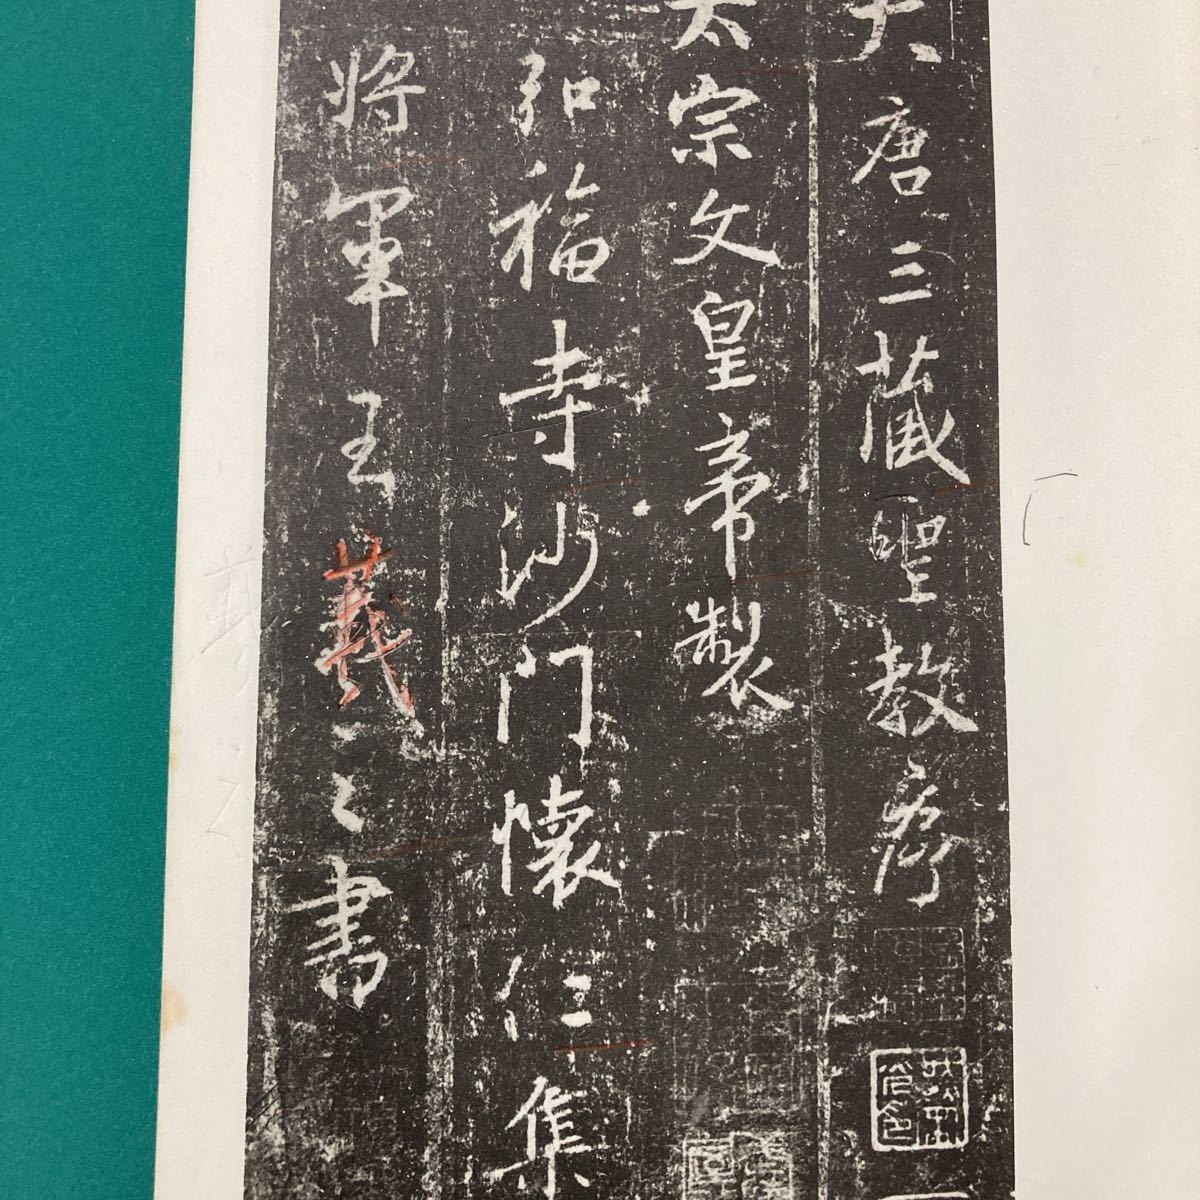 大唐三藏聖教序
太宗文皇帝製
弘福寺沙門懷仁集
將軍王羲之書